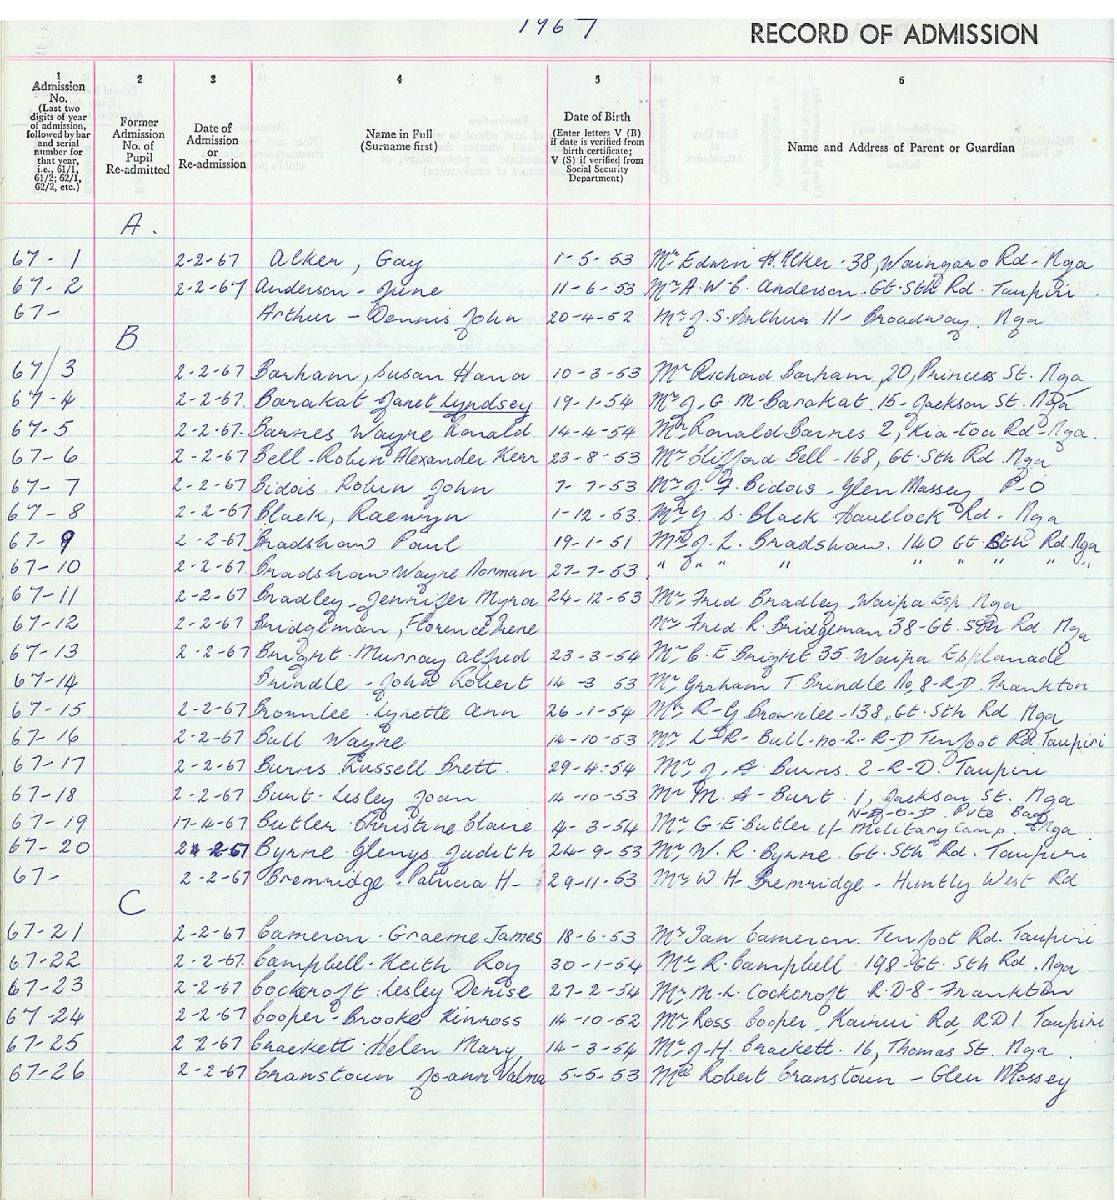 1967
RECORD OF ADMISSION
1 2 3 4 5 6
Admission No. (Last two digits of year of admission, followed by bar and serial number for that year, i.e., 61/1, 61/2; 62/1, 62/2, etc.)
Former Admission No. of Pupil Re-admitted
Date of Admission or Re-admission
Name in Full (Surname first)
Date of Birth (Enter letters V (B) if date is verified from birth certificate; V (S) if verified from Social Security Department)
Name and Address of Parent or Guardian
A.
67-1 2-2-67 Alker, Gay 1-5-53 Mr Edwin H. Alker - 38, Waingaro Rd - Nga
67-2 2-2-67 Anderson - June 11-6-53 Mr A. W. C. Anderson. Gt. Sth Rd. Taupiri
67- Arthur - Dennis John 20-4-52 Mr J. S. Arthur 11- Broadway. Nga
B
67/3 2-2-67 Barham, Susan Hana 10-3-53 Mr Richard Barham, 20, Princess St. Nga
67-4 2-2-67. Barakat Janet Lyndsey 19-1-54 Mr J. G. M. Barakat. 15- Jackson St. Nga
67-5 2-2-67. Barnes Wayne Ronald 14-4-54 Mr Ronald Barnes 2, Kia-toa Rd - Nga.
67-6 2-2-67 Bell - Robin Alexander Kerr 23-8-53 Mr Clifford Bell - 168, Gt. Sth Rd. Nga
67-7 2-2-67 Bidois. Robin John 7-7-53 Mr J. F. Bidois - Glen Massey P-O
67-8 2-2-67 Black, Raewyn 1-12-53. Mr G S. Black Havelock Rd. - Nga
67-9 2-2-67. Bradshaw Paul 19-1-51 J. L. Bradshaw. 140 Gt. Sth Rd. Nga
67-10 2-2-67. Bradshaw Wayne Norman 27-7-53. " " " " " " " " "
67-11 2-2-67 Bradley - Jennifer Myra 24-12-53 Mr Fred Bradley Waipa Esp. Nga
67-12 2-2-67 Bridgeman, Florence Irene Mr Fred R. Bridgeman 38-Gt. Sth Rd. Nga
67-13 2-2-67 Bright - Murray Alfred 23-3-54 Mr C. E Bright 35. Waipa Esplanade
67-14 Brindle - John Robert 14-3 53 Mr Graham T Brindle No 8-R.D. Frankton
67-15 2-2-67 Brownlee - Lynette Ann 26-1-54 Mr R-G Brownlee - 138, Gt. Sth Rd Nga
67-16 2-2-67 Bull Wayne 14-10-53 Mr L-R- Bull - no-2-R-D Tenfoot Rd. Taupiri
67-17 2-2-67 Burns Russell Brett. 29-4-54 Mr J. A Burns. 2-R-D. Taupiri
67-18 2-2-67 Burt - Lesley Joan 14-10-53 Mr M. A - Burt. 1, Jackson St. Nga
67-19 17-4-67 Butler Christine Claire 4-3-54 Mr G. E Butler Pvte Bag Military Camp. Nga
67-20 2-2-67 Byrne Glenys Judith 24-9-53 Mr W. R. Byrne. Gt. Sth Rd. Taupiri
67- 2-2-67 Bremridge - Patricia H- 29-11-53 Mr W H - Bremridge - Huntly West Rd
C
67-21 2-2-67 Cameron - Graeme James 18-6-53 Mr Ian Cameron. Tenfoot Rd. Taupiri
67-22 2-2-67. Campbell - Keith Roy 30-1-54 Mr R. Campbell 198-Gt. Sth Rd. Nga
67-23 2-2-67 Cockcroft - Lesley Denise 27-2-54 Mr M-L Cockcroft R-D-8- Frankton
67-24 2-2-67 Cooper - Brooke Kinross 14-10-52 Mr Ross Cooper, Kainui Rd, RD1 Taupiri
67-25 2-2-67 Crackett - Helen Mary 14-3-54 Mr J. H. Crackett. 16, Thomas St. Nga.
67-26 2-2-67 Cranstoun Joann Valma 5-5-53 Robert Cranstoun - Glen Massey